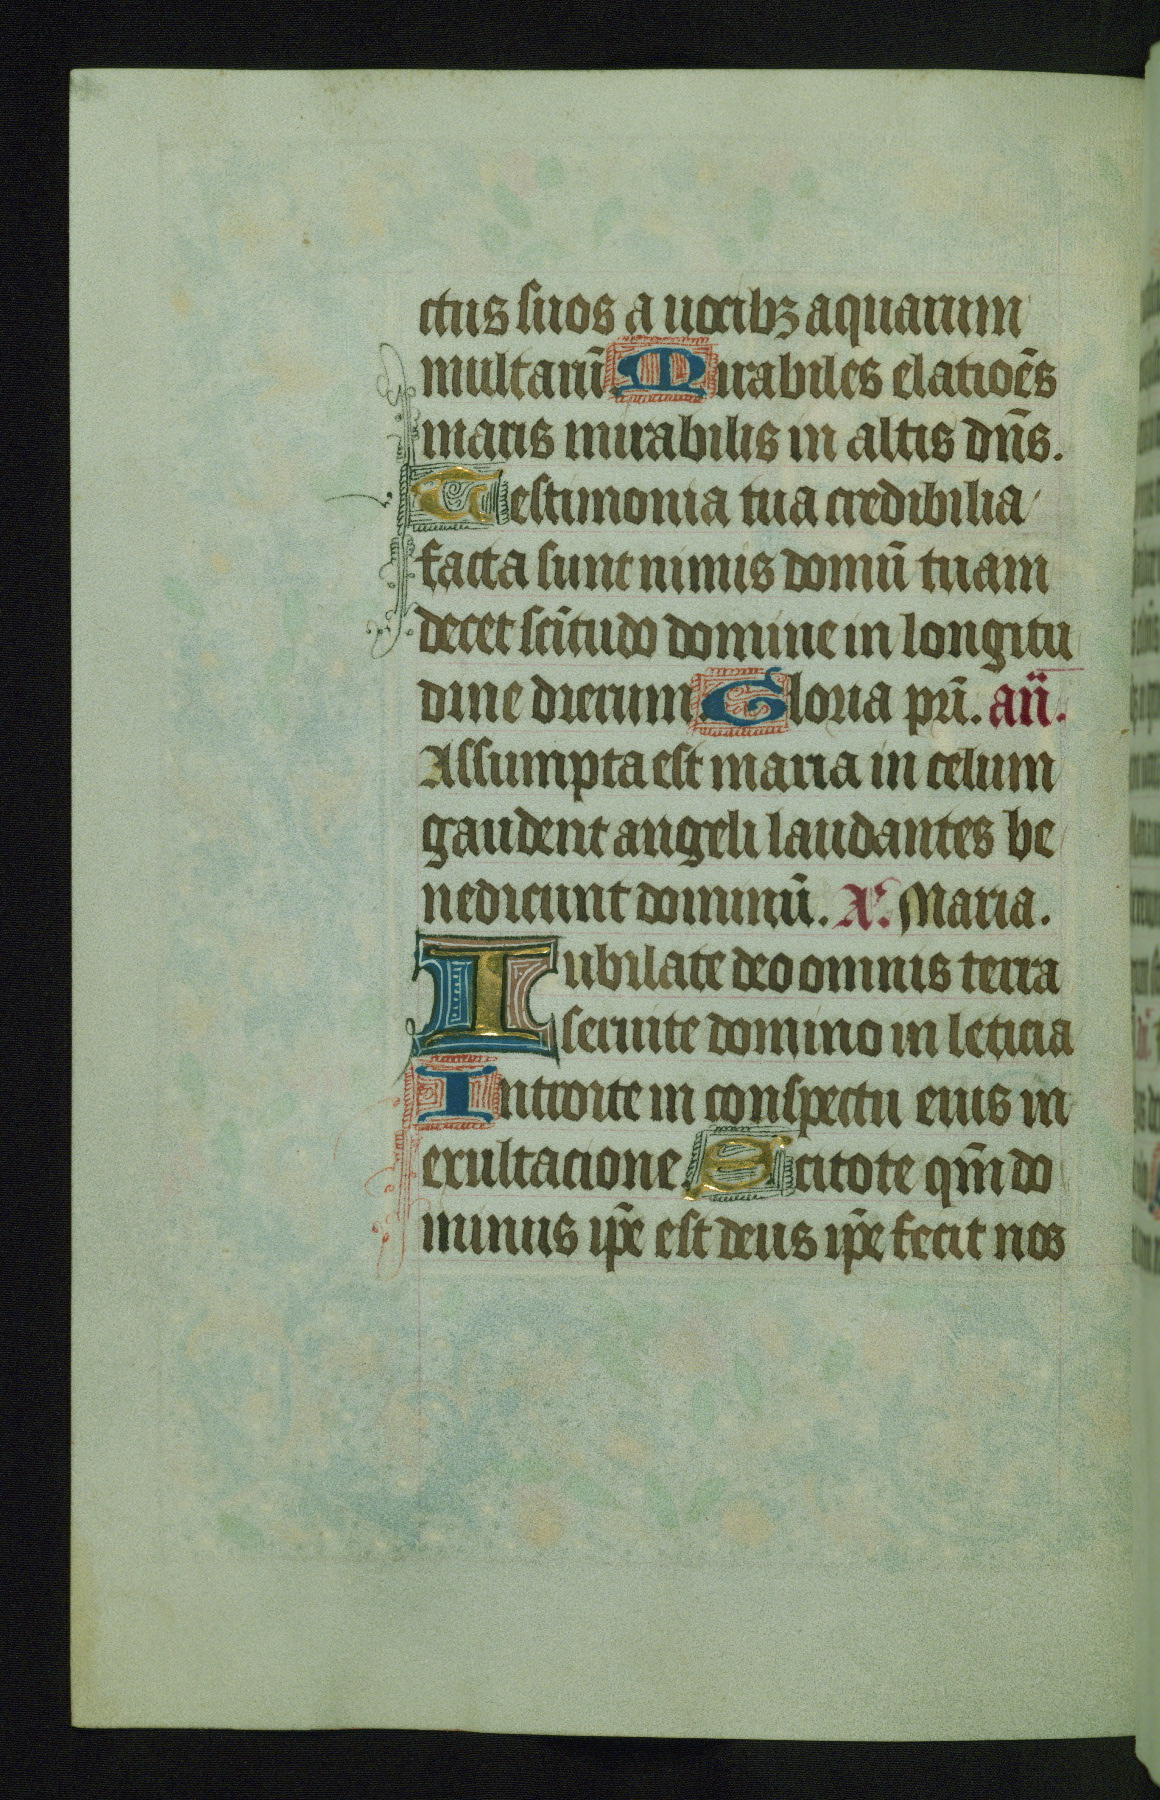 ctus suos a uocibꝫ aquarum
multarū Mirabiles elatioēs
maris mirabilis in altis dn̄s.
Testimonia tua credibilia
facta sunt nimis domū tuam
decet scītudo domine in longitu
dine dierum Gloria pr̄i. an̄.
Assumpta est maria in celum
gaudent angeli laudantes be
nedicunt dominū. Maria.
Iubilate deo omnis terra
seruite domino in leticia
Introite in conspectu eius in
exultacione. Scitote qm̄ do
minus ip̄e est deus ip̄e fecit nos